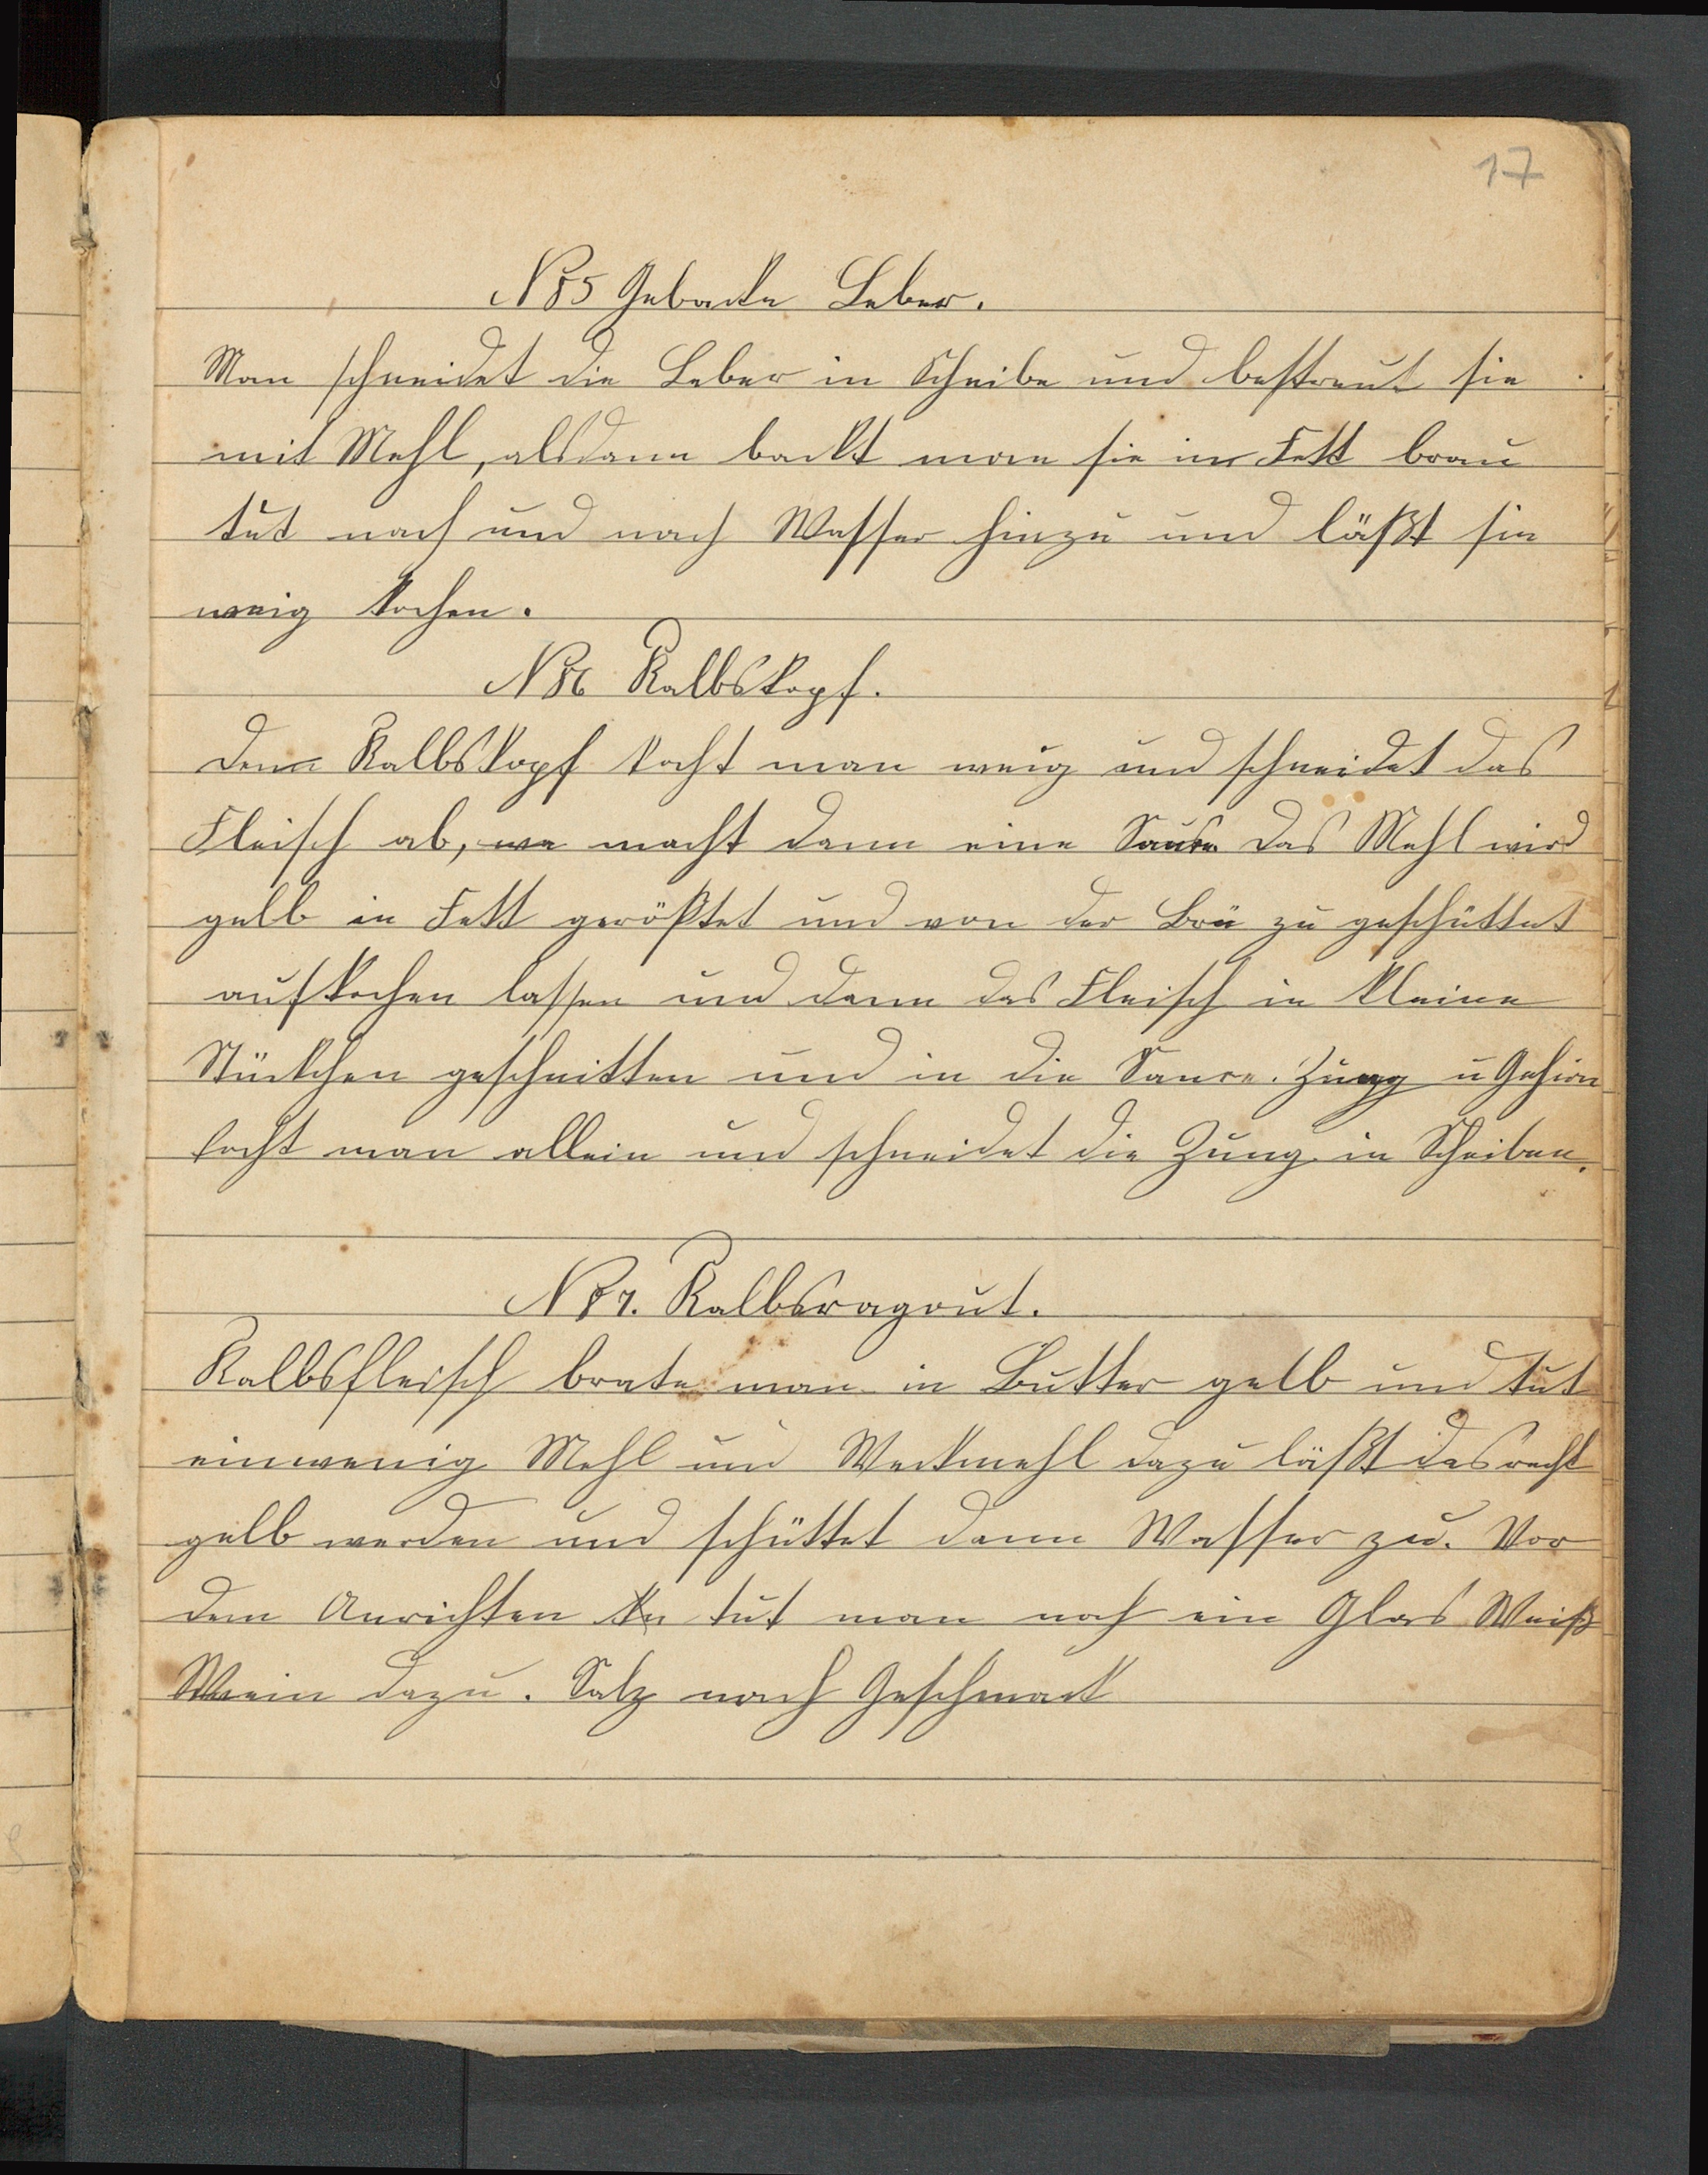 17
N 85 Gebacke Leber.
Man schneidet die Leber in Scheibe und bestreut sie
mit Mehl, alsdann backt man sie in Fett brau
tut nach und nach Wasser hinzu und läßt sie
weig kochen.
N 86 Kalbskopf.
Denn Kalbskopf kocht man weig und schneidet das
Fleisch ab, macht dann eine Sause das Mehl wird
gelb in Fett gerößtet und von der Brü zu geschüttet
aufkochen lassen und dann das Fleisch in kleine
Stückchen geschnitten und in die Sause. Zung u Gehirn
kocht man allein und schneidet die Zung in Scheiben.
N 87. Kalbsragout.
Kalbsfleisch brate man in Butter gelb und tut
einwenig Mehl und Weckmehl dazu läßt das recht
gelb werden und schüttet dann Wasser zu. Vor
dem Anrichten tut man noch ein Glas Weiß
Wein dazu. Salz nach Geschmack